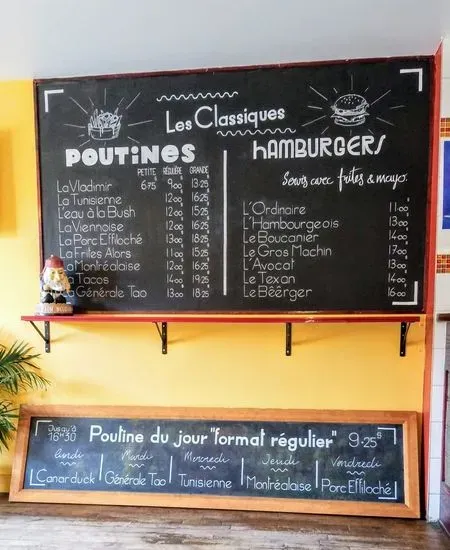 Les Classiques
POUTINES
PETITE RÉGULIÈRE GRANDE
La Vladimir 6.75 9.00 13.25
La Tunisienne 12.00 16.25
L'eau à la Bush 12.00 15.25
La Viennoise 12.00 16.25
La Porc Effiloché 13.00 18.25
La Frites Alors 11.00 15.25
La Montréalaise 12.00 16.25
La Tacos 14.00 19.25
La Générale Tao 13.00 18.25
HAMBURGERS
Servis avec frites & mayo.
L'Ordinaire 11.00
L'Hambourgeois 13.00
Le Boucanier 14.00
Le Gros Machin 17.00
L'Avocat 13.00
Le Texan 14.00
Le Bèèrger 16.00
Jusqu'à
16H30
Poutine du jour "format régulier" 9.25$
Lundi Mardi Mercredi Jeudi Vendredi
Canarduck Générale Tao Tunisienne Montréalaise Porc Effiloché